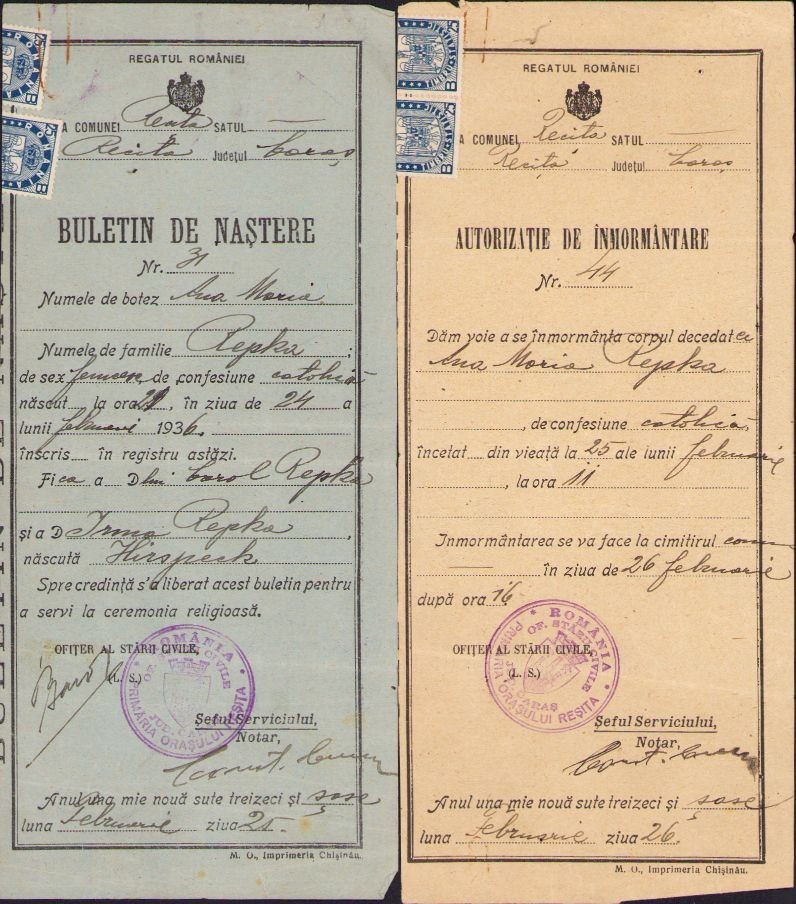 REGATUL ROMÂNIEI
A COMUNEI Recita SATUL —
Recita Județul Caraș
BULETIN DE NAȘTERE
Nr. 31
Numele de botez Ana Maria
Numele de familie Repka ;
de sex femeen de confesiune catolică
născut la ora 21, în ziua de 24 a
lunii februarie 1936.
înscris în registru astăzi.
Fiica a Dlui Carol Repka
și a D Irma Repka,
născută Hirspeck
Spre credință s'a liberat acest buletin pentru
a servi la ceremonia religioasă.
OFIȚER AL STĂRII CIVILE,
(L. S.)
ROMÂNIA
OF. STĂRII CIVILE
PRIMĂRIA ORAȘULUI REȘITA
JUD. CARAȘ
Șeful Serviciului,
Notar,
Const.
Anul una mie nouă sute treizeci și șase
luna Februarie ziua 25.
M. O., Imprimeria Chișinău.
REGATUL ROMÂNIEI
A COMUNEI Recița SATUL —
Recița Județul Caraș
AUTORIZAȚIE DE ÎNMORMÂNTARE
Nr. 44
Dăm voie a se înmormânta corpul decedatei
Ana Maria Repka
, de confesiune catolică,
încetat din vieață la 25 ale lunii februarie
, la ora 11
Inmormântarea se va face la cimitirul comun
— în ziua de 26 februarie
după ora 16.
OFIȚER AL STĂRII CIVILE,
(L. S.)
ROMÂNIA
OF. STĂRII CIVILE
PRIMĂRIA ORAȘULUI REȘITA
JUD. CARAȘ
Șeful Serviciului,
Notar,
Const.
Anul una mie nouă sute treizeci și șase
luna Februarie ziua 26.
M. O., Imprimeria Chișinău.